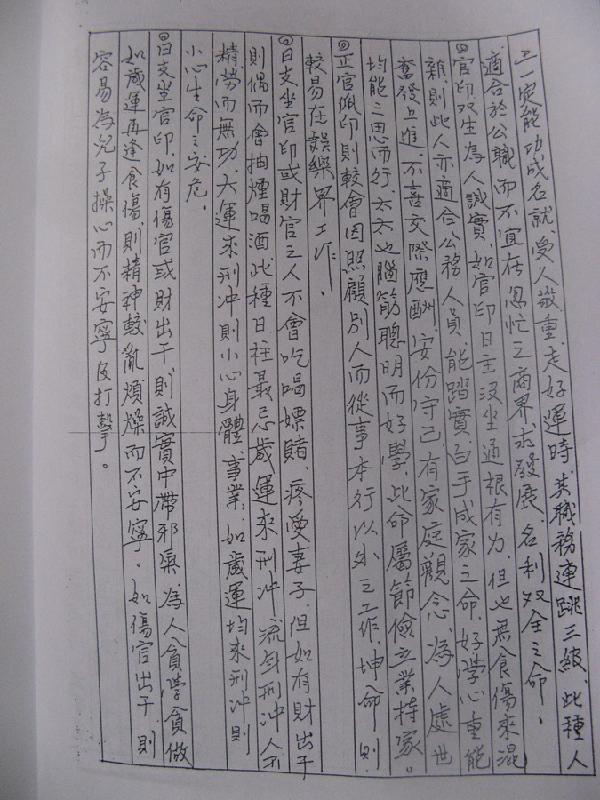 之一定能功成名就,受人敬重,走好運時,其職務連跳三級,此種人
適合於公職而不宜在忽忙工商界求發展,名利双全之命,
四官印双生為人誠實,如官印日主沒坐通根有力,但也無食傷來混
雜,則此人亦適合公務人員,能踏實白手成家之命,好學心重能
奮發上進,不喜交際應酬,安份守己有家庭觀念,為人處世
均能三思而行,太太也腦筋聰明而好學,此命屬節儉立業持家。
正官佩印則較會因照顧別人而從事本行以外之工作,坤命則
較易在娛樂界工作,
日支坐官印或財官之人不會吃喝嫖賭,疼愛妻子,但如有財出干
則偶而會抽煙喝酒,此種日柱最忌歲運來刑冲,流年刑冲
精勞而無功,大運來刑冲則小心身體、事業,如歲運均來刑冲則
小心生命之安危,
日支坐官印,如有傷官或財出干則誠實中帶邪氣,為人貪學貪做
如歲運再逢食傷,則精神較亂煩燥而不安寧,如傷官出干,則
容易為兒子操心而不安寧及打擊。